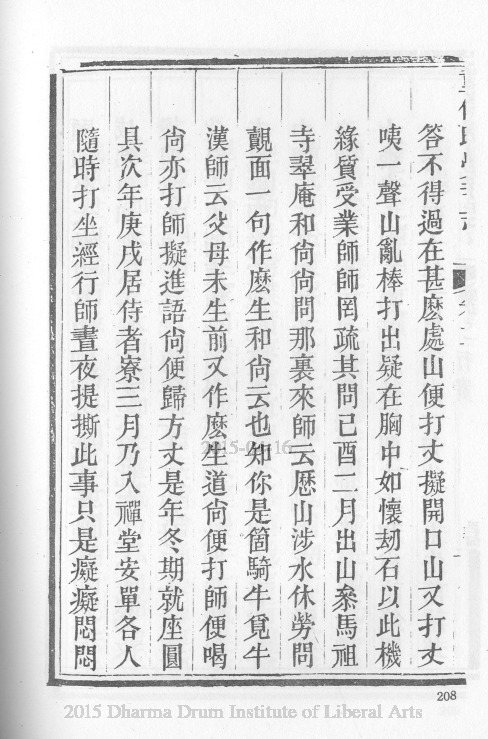 答不得過在甚麼處山便打丈擬開口山又打丈
咦一聲山亂棒打出疑在胸中如懷刼石以此機
緣質受業師師罔疏其問己酉二月出山叅馬祖
寺翠庵和尙尙問那裏來師云歷山涉水休勞問
覿面一句作麼生和尙云也知你是箇騎牛覓牛
漢師云父母未生前又作麼生道尙便打師便喝
尙亦打師擬進語尙便歸方丈是年冬期就座圓
具次年庚戌居侍者寮三月乃入禪堂安單各人
隨時打坐經行師晝夜提撕此事只是癡癡悶悶
208
2015-04-16
2015 Dharma Drum Institute of Liberal Arts